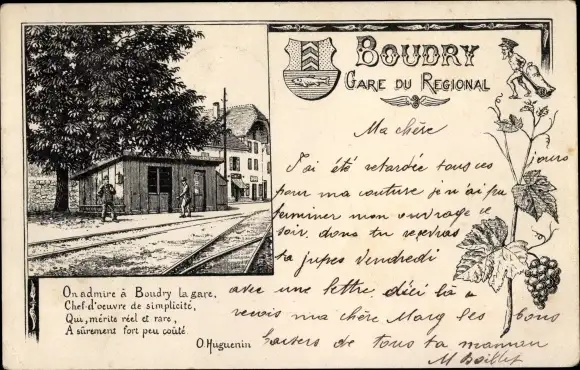 BOUDRY
GARE DU REGIONAL
Ma chère
J'ai été retardée tous ces jours
pour ma couture je n'ai pu
terminer mon ouvrage ce
soir, donc tu recevras
ta jupes Vendredi
avec une lettre, d'ici là
recois ma chère Marg les bons
baisers de tous ta maman
M
On admire à Boudry la gare,
Chef-d'oeuvre de simplicité,
Qui, mérite réel et rare,
A sûrement fort peu coûté.
O. Huguenin